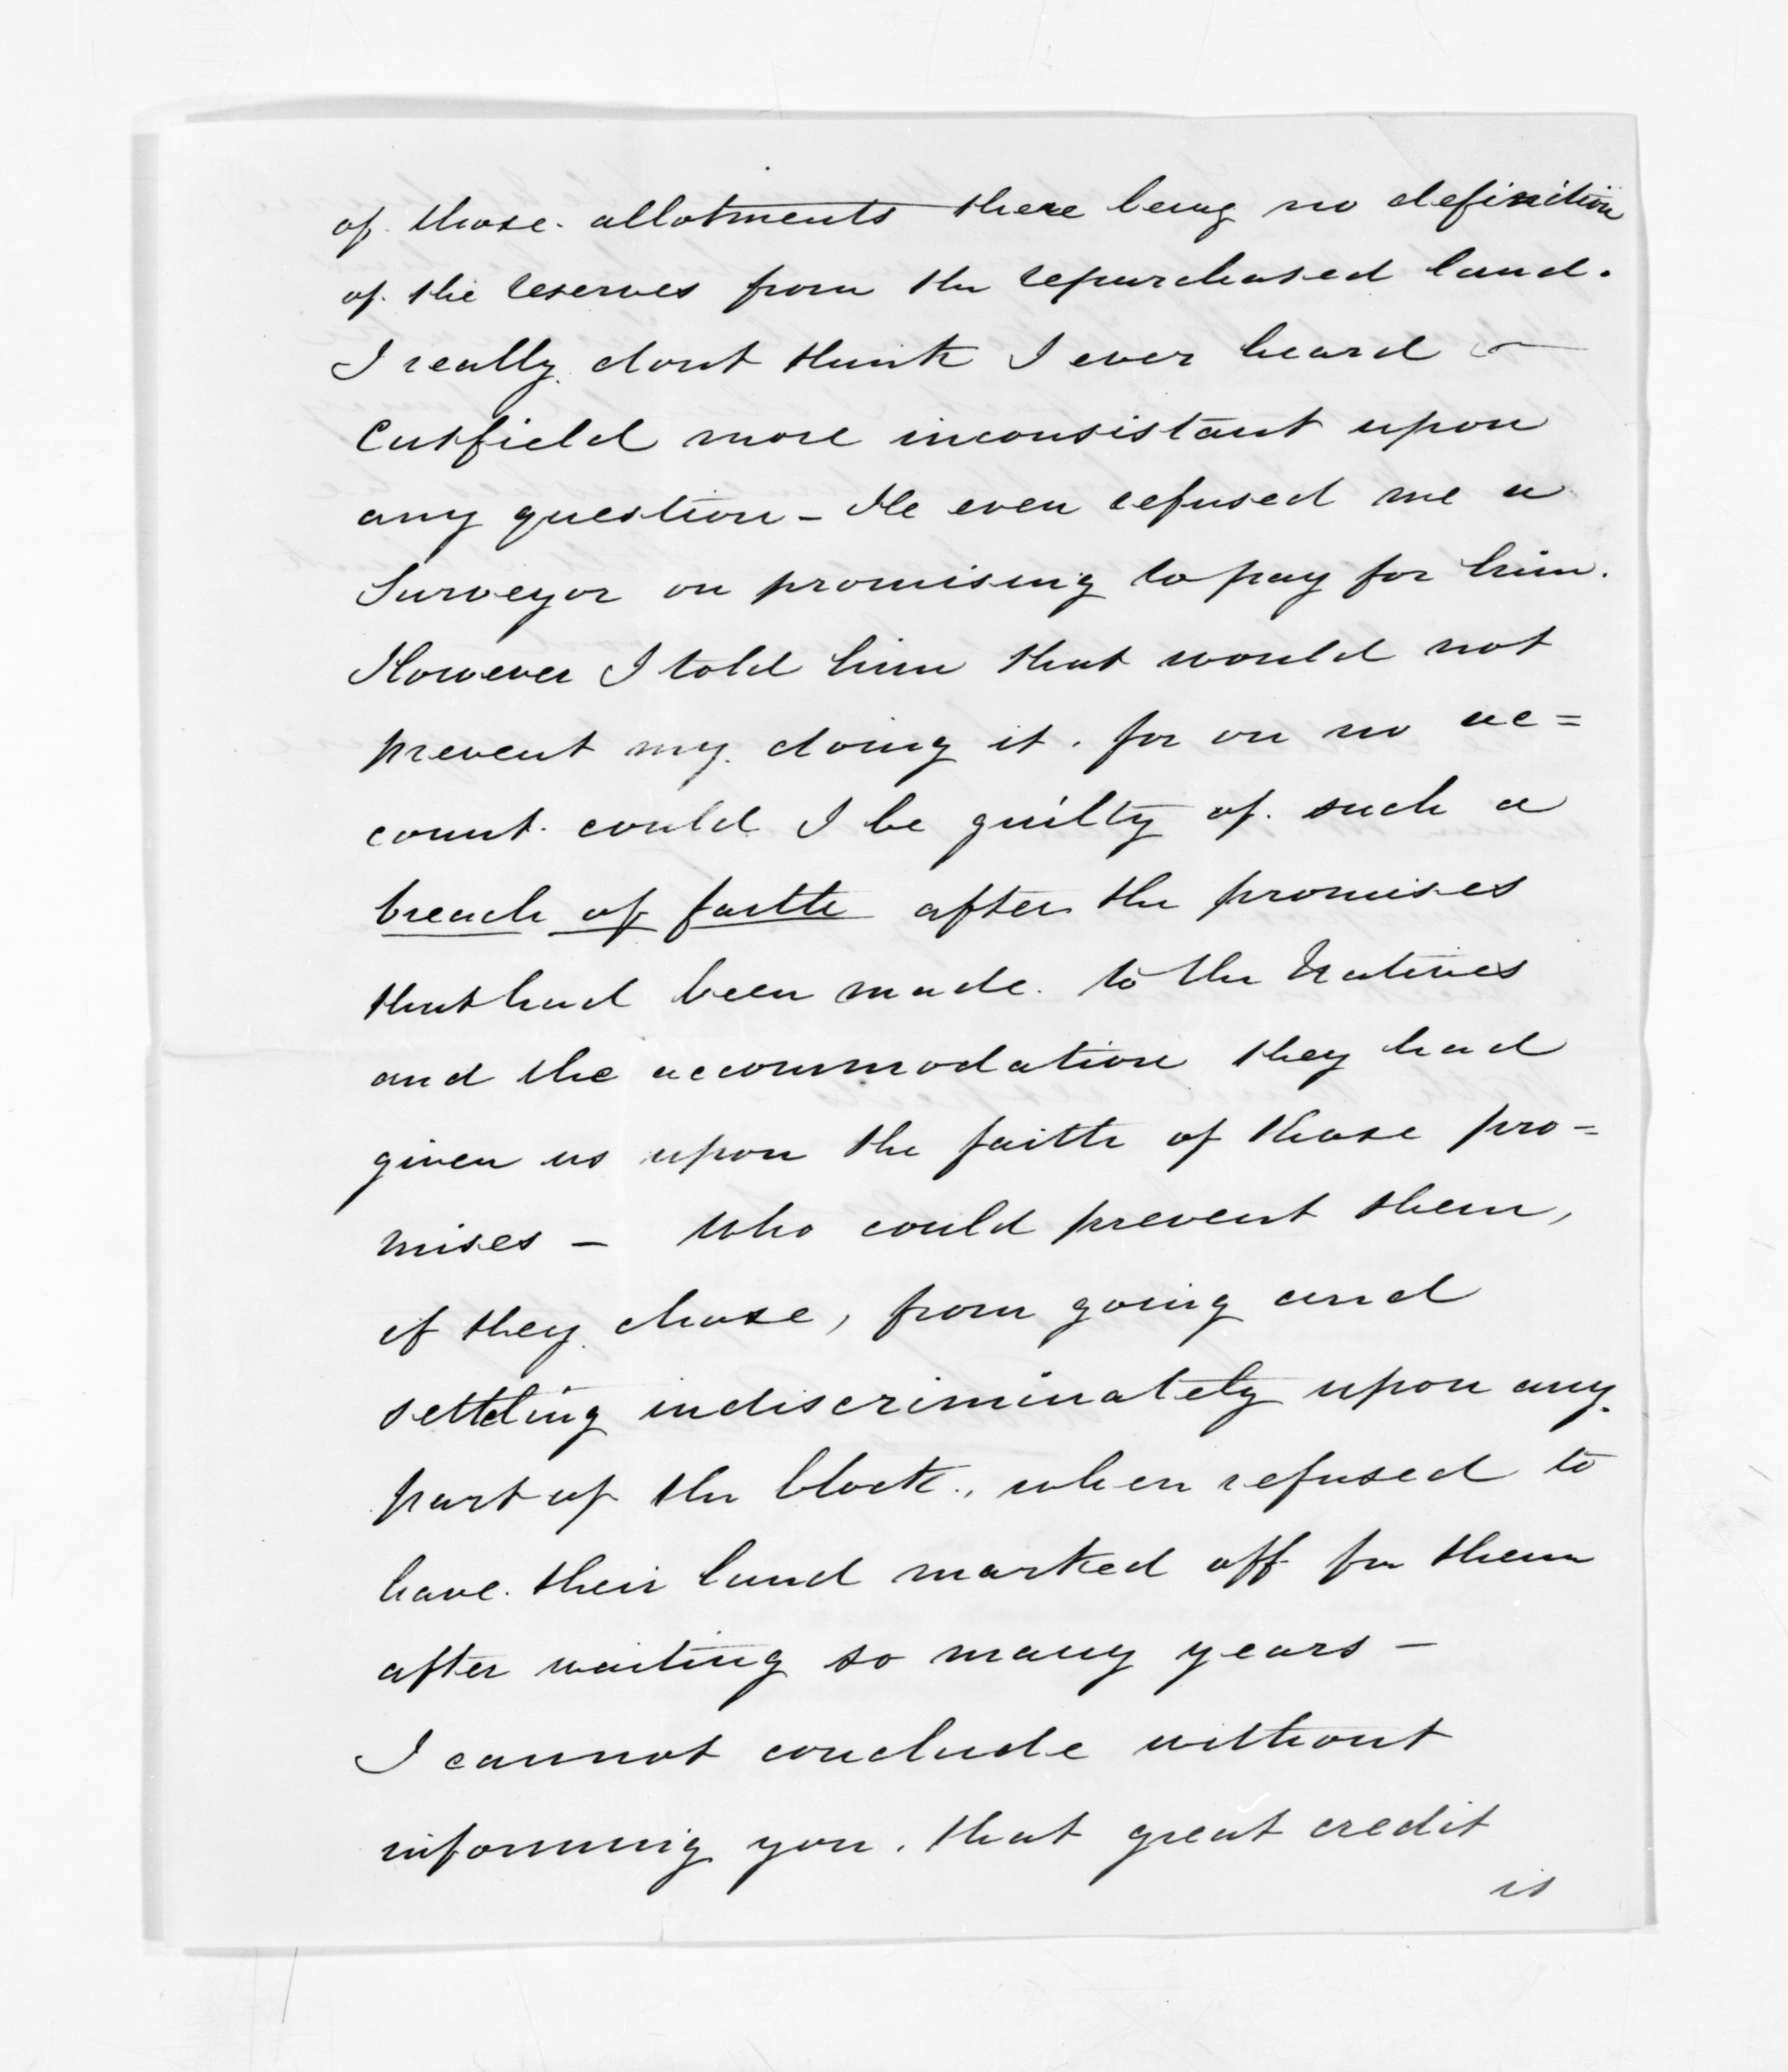 of those allotments there being no definition
of the reserves from the repurchased land.
I really dont think I ever heard
Cutfield more inconsistant upon
any question - He even refused me a
Surveyor on promising to pay for him.
However I told him that would not
prevent my doing it. for on no ac=
count could I be guilty of such a
breach of faith after the promises
that had been made to the Natives
and the accommodation they had
given us upon the faith of those pro=
mises - Who could prevent them,
if they chose, from going and
settling indiscriminately upon any
part of the block, when refused to
have their land marked off for them
after waiting so many years -
I cannot conclude without
informing you, that great credit
is